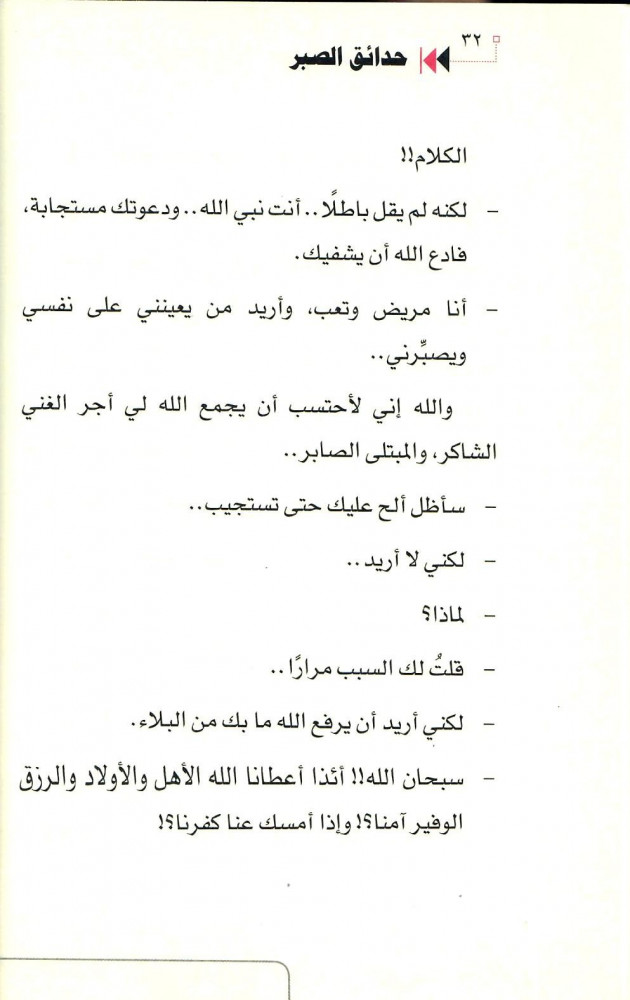 ٣٢
حدائق الصبر
الكلام!!
- لكنه لم يقل باطلًا.. أنت نبي الله.. ودعوتك مستجابة،
فادع الله أن يشفيك.
- أنا مريض وتعب، وأريد من يعينني على نفسي
ويصبِّرني..
والله إني لأحتسب أن يجمع الله لي أجر الغني
الشاكر، والمبتلى الصابر..
- سأظل ألح عليك حتى تستجيب..
- لكني لا أريد..
- لماذا؟
- قلتُ لك السبب مرارًا..
- لكني أريد أن يرفع الله ما بك من البلاء.
- سبحان الله!! أئذا أعطانا الله الأهل والأولاد والرزق
الوفير آمنا؟! وإذا أمسك عنا كفرنا؟!